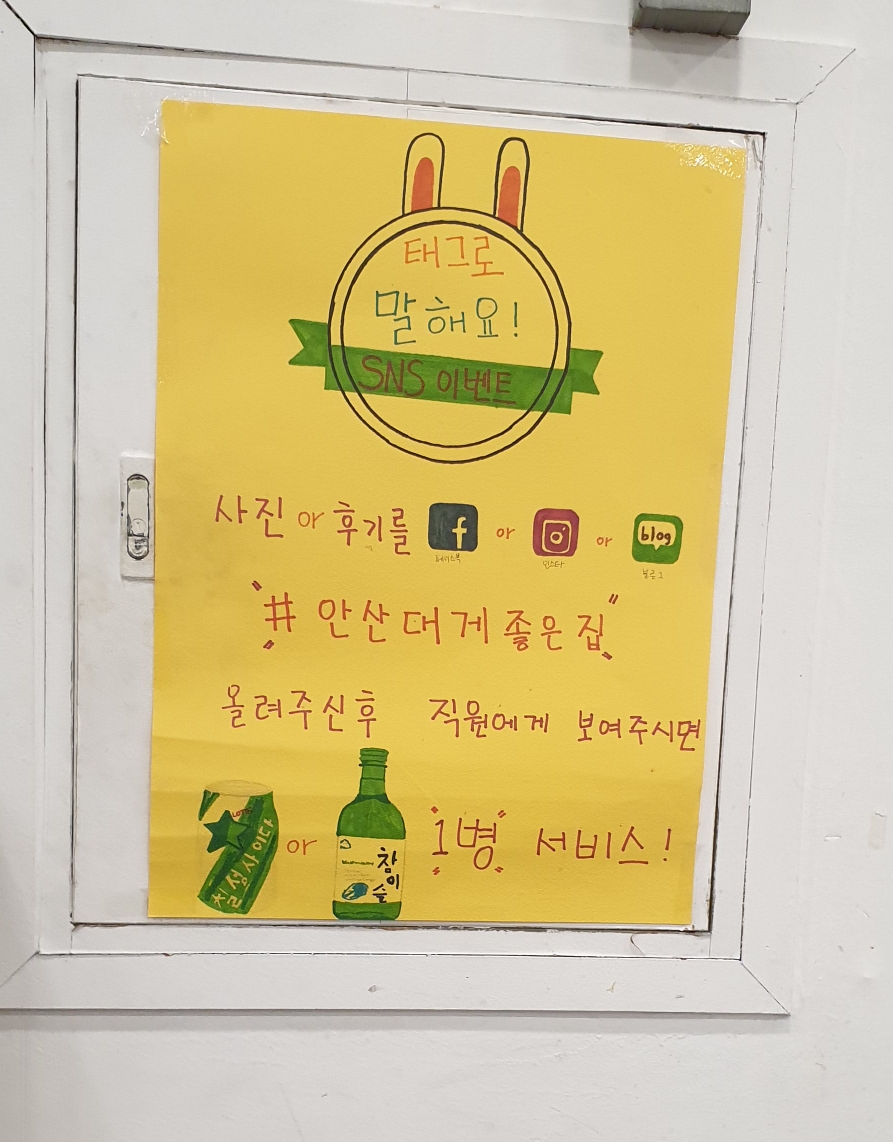 태그로
말해요!
SNS 이벤트
사진 or 후기를 f or or blog
페이스북 인스타 블로그
"# 안산대게좋은집"
올려주신후 직원에게 보여주시면
LOTTE
칠성사이다 or 참이슬 "1병" 서비스!